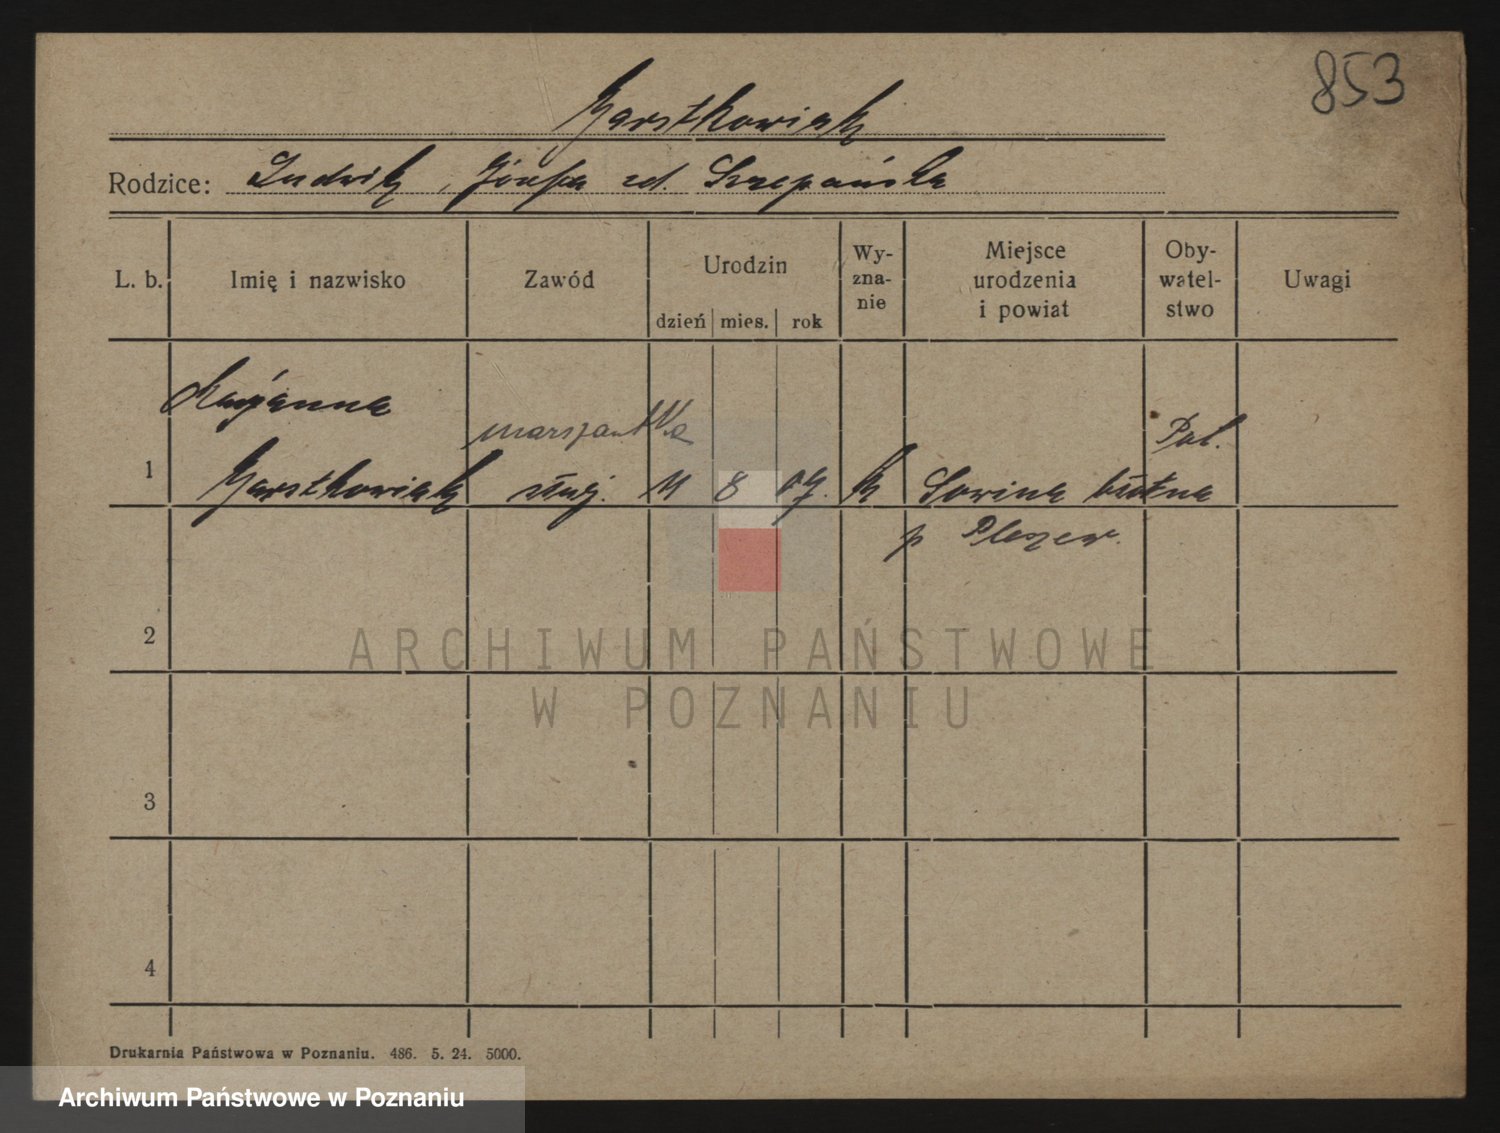 853
Garstkowiak
Rodzice: Ludwik, Józefa zd. Szczepańska
L. b. Imię i nazwisko Zawód Urodzin dzień mies. rok Wy-zna-nie Miejsce urodzenia i powiat Oby-watel-stwo Uwagi
Marjanna
marszantka Pol.
1 Garstkowiak służ. 11 8 07. k Sowina błotna
p Pleszew.
2
3
4
ARCHIWUM PAŃSTWOWE
W POZNANIU
Drukarnia Państwowa w Poznaniu. 486. 5. 24. 5000.
Archiwum Państwowe w Poznaniu